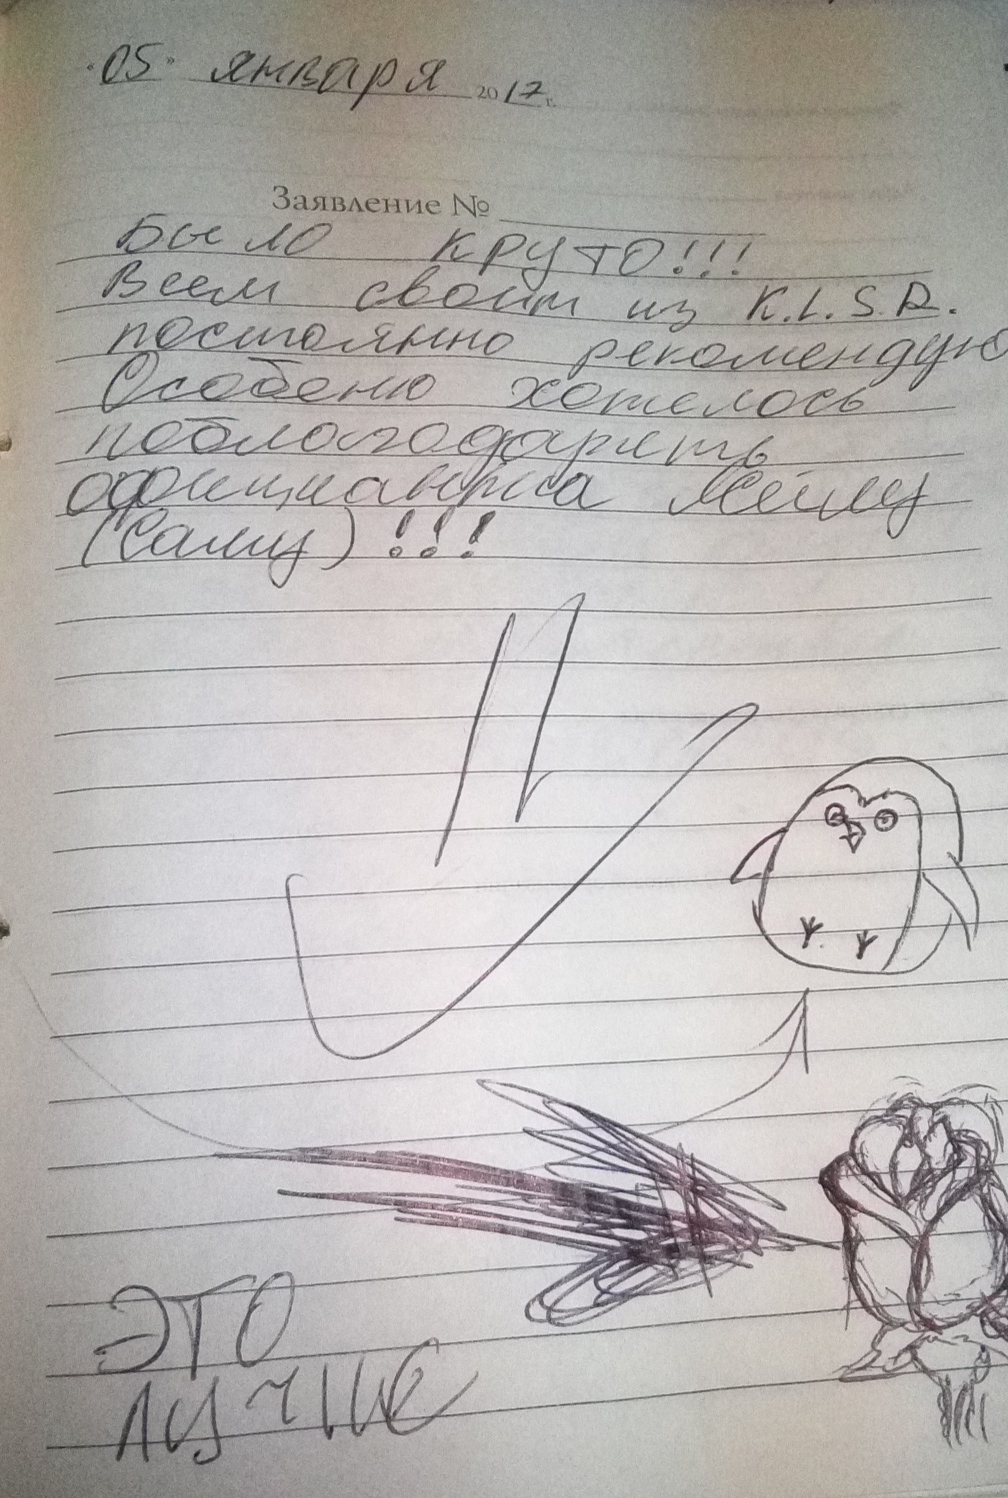 "05" января 2017 г.
Заявление №
Было круто!!!
Всем своим из K.L.S.R.
постоянно рекомендую
Особено хотелось
поблагодарить
официанта
(Саму)!!!
ЭТО
ЛУЧШЕ